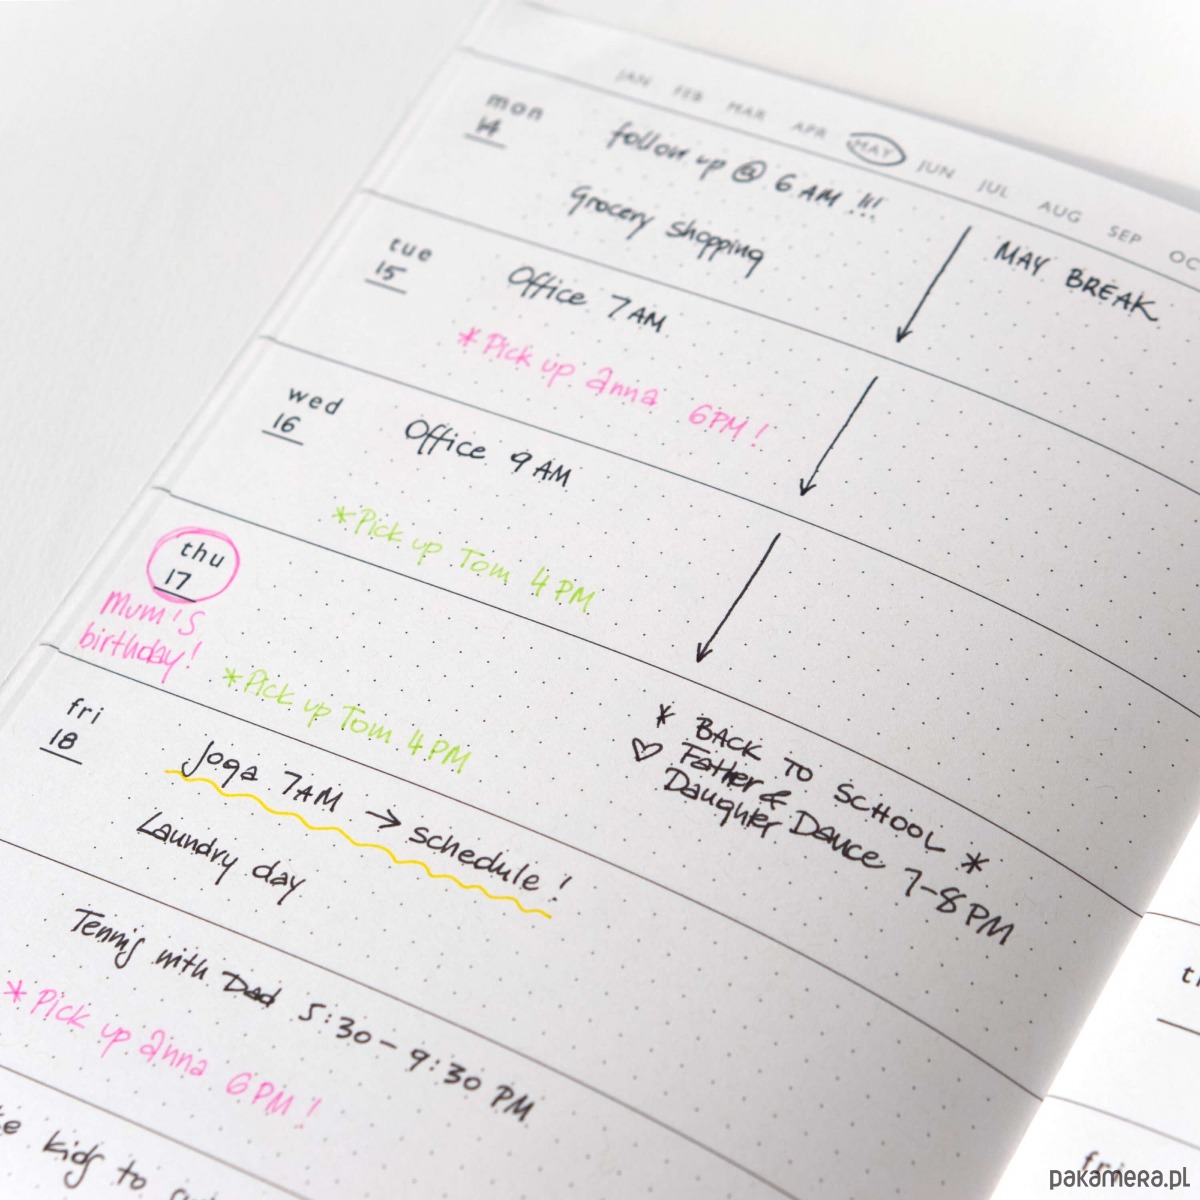 JAN FEB MAR APR MAY JUN JUL AUG SEP OC
mon
14
follow up @ 6 AM !!!
Grocery shopping
MAY BREAK
tue
15
Office 7AM
*Pick up anna 6PM!
wed
16
Office 9AM
*Pick up Tom 4PM
thu
17
Mum's
birthday!
*Pick up Tom 4PM
* BACK TO SCHOOL *
♡ Father &
Daughter Dance 7-8PM
fri
18
Joga 7AM → schedule!
Laundry day
Tennis with Dad 5:30-9:30 PM
*Pick up anna 6PM!
kids to
fri
pakamera.pl